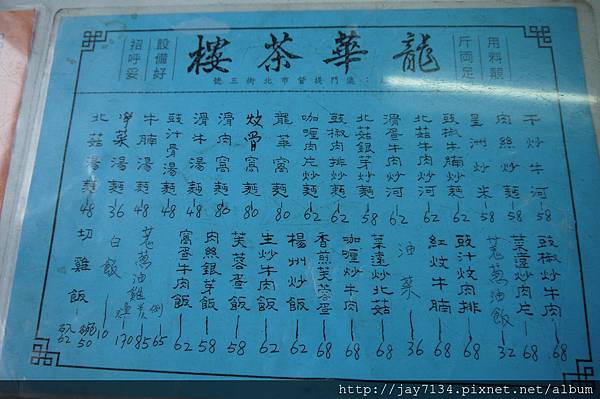 用料靚
斤両足
龍華茶樓
設備好
招呼妥
澳門提督市北街三號
干炒牛河 58
肉絲炒麵 58
星洲炒米 58
豉椒牛腩炒河 62
北菇牛肉炒河 62
滑蛋牛肉炒河 62
北菇銀芽炒麵 58
豉椒肉排炒麵 62
咖喱肉片炒麵 62
龍華窩麵 80
炆骨窩麵 80
滑肉窩麵 80
滑牛湯麵 48
豉汁骨湯麵 48
牛腩湯麵 48
淨菜湯麵 36
北菇湯麵 48
豉椒炒牛肉 68
菜薳炒肉片 68
羗葱油飯 32
豉汁炆肉排 68
紅炆牛腩 68
油菜 36
菜遠炒北菇 68
咖喱炒牛肉 68
香煎芙蓉蛋 68
楊州炒飯 62
生炒牛肉飯 62
芙蓉蛋飯 58
肉絲銀芽飯 58
窩蛋牛肉飯 62
羗葱油雞 例65 85 170
白飯 10
切雞飯 碗50 62
http://jay7134.pixnet.net/album